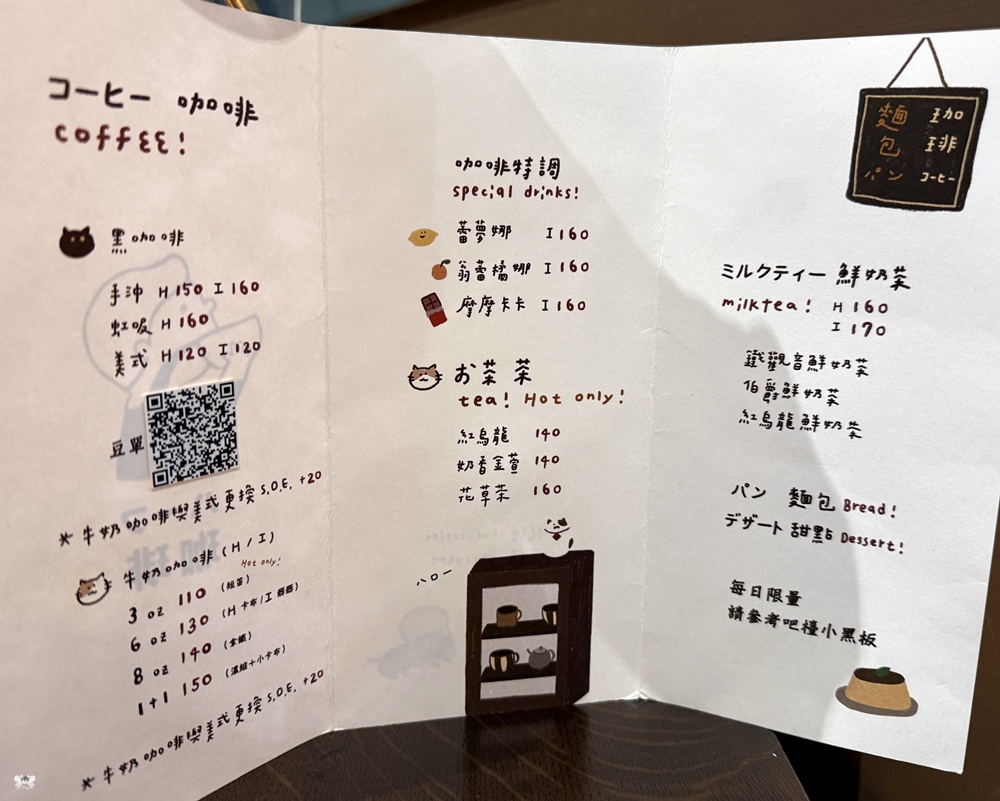 コーヒー 咖啡
coffee!
黑咖啡
手沖 H 150 I 160
虹吸 H 160
美式 H 120 I 120
豆單
* 牛奶咖啡與美式更換 S.O.E. +20
牛奶咖啡 (H / I)
Hot only!
3 oz 110 (短笛)
6 oz 130 (H 卡布/I 摺摺)
8 oz 140 (拿鐵)
1+1 150 (濃縮+小卡布)
* 牛奶咖啡與美式更換 S.O.E. +20
咖啡特調
special drinks!
蕾夢娜 I 160
翁蕾橘娜 I 160
摩摩卡卡 I 160
お茶 茶
tea! Hot only!
紅烏龍 140
奶香金萱 140
花草茶 160
ハロー
麵包 珈琲
パン コーヒー
ミルクティー 鮮奶茶
milktea! H 160
I 170
鐵觀音鮮奶茶
伯爵鮮奶茶
紅烏龍鮮奶茶
パン 麵包 Bread!
デザート 甜點 Dessert!
每日限量
請參考吧檯小黑板